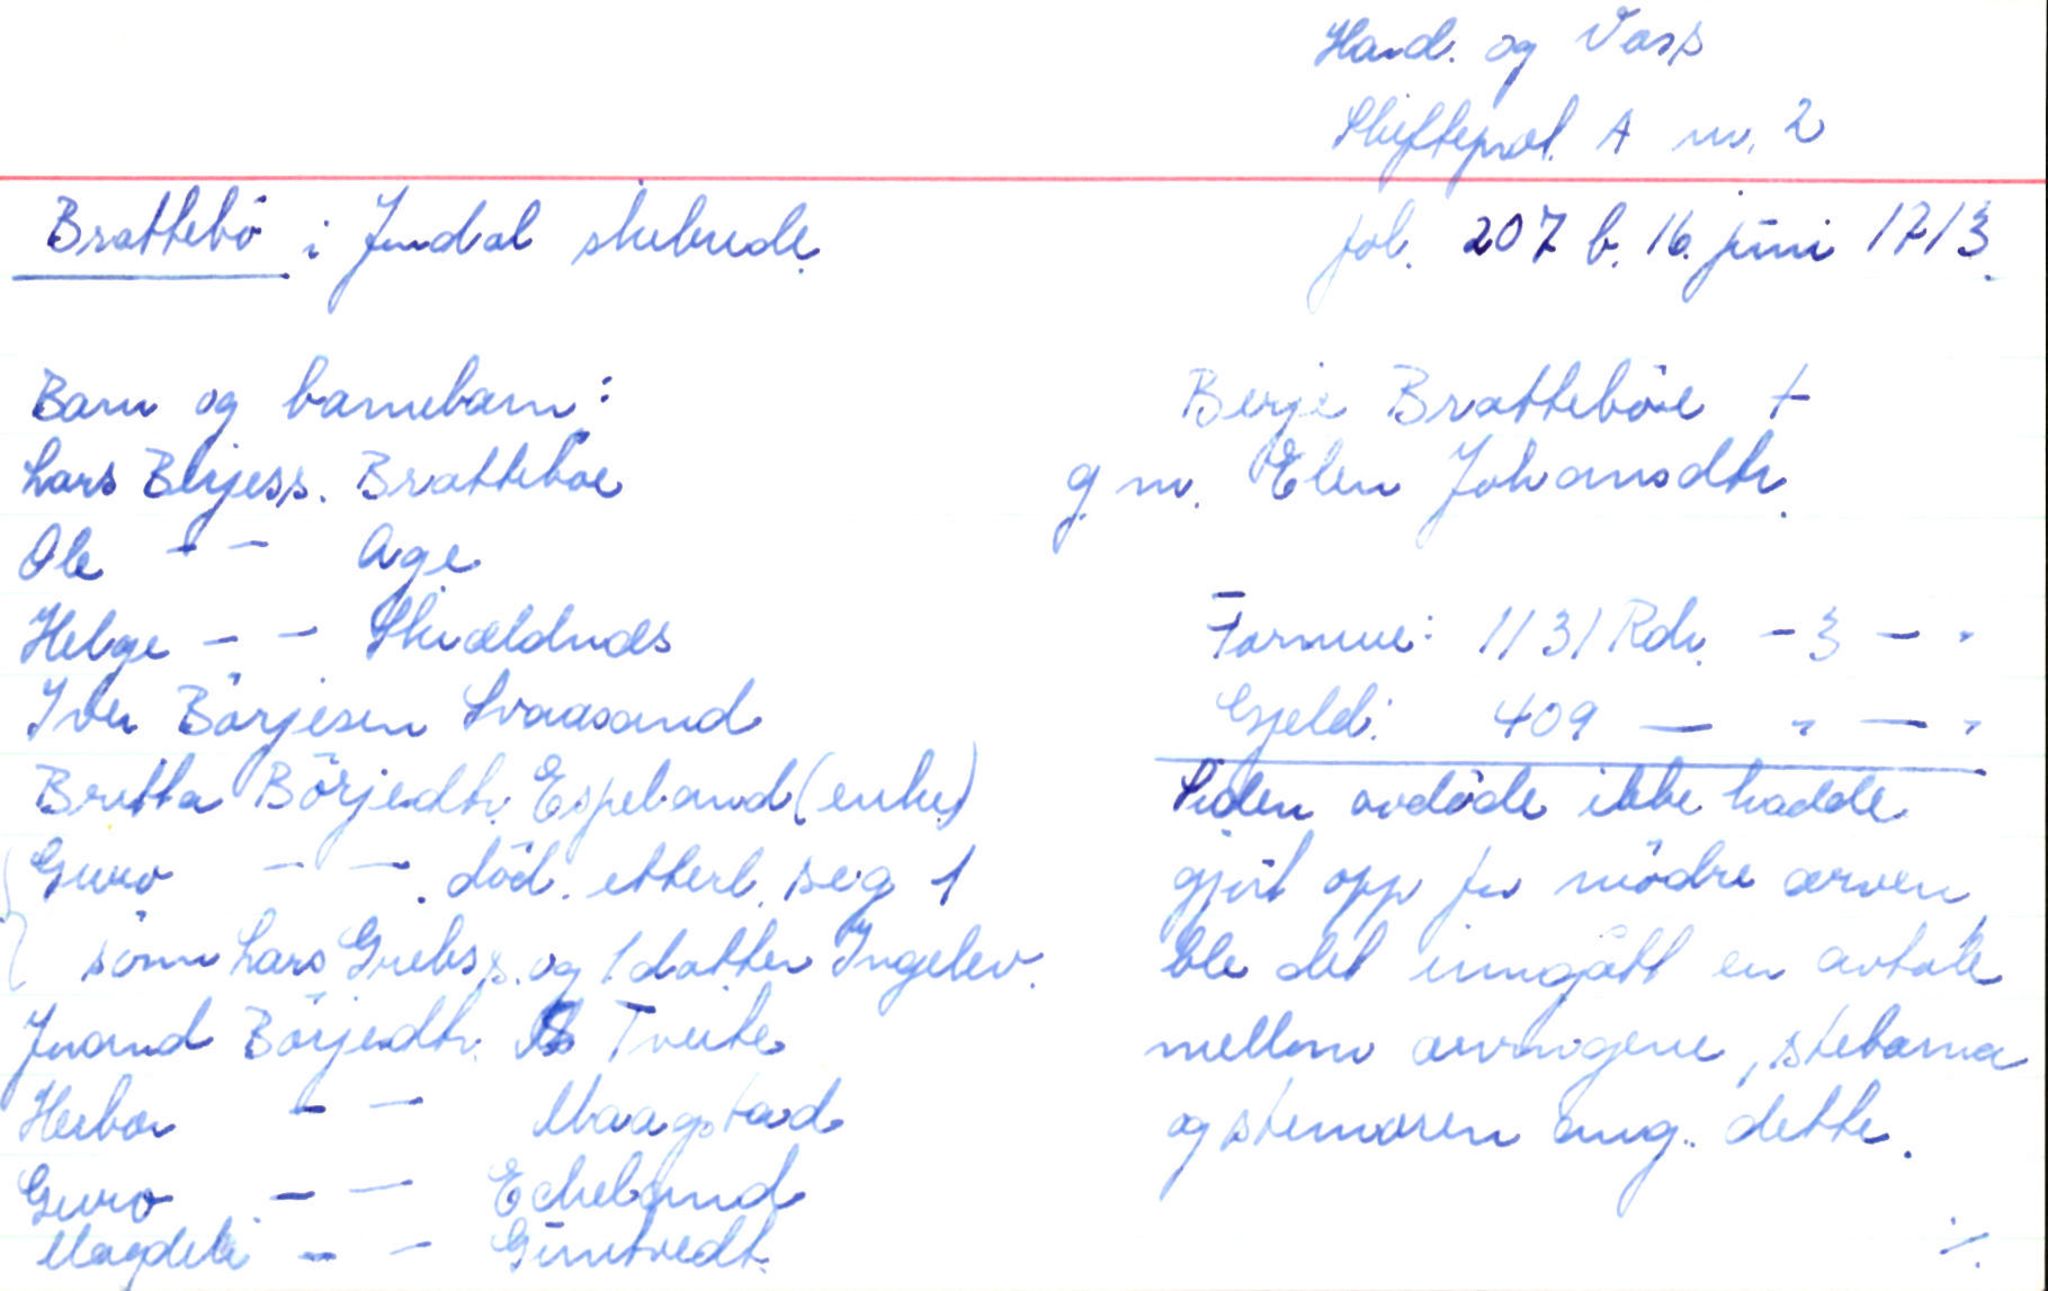 Hard. og Voss
Skifteprot. A nr. 2
Brattebö i Jondal skibrede
fol. 207 b. 16. juni 1713.
Barn og barnebarn:
Lars Birjess. Bratteboe
Ole - - Age
Helge - - Skiældnæs
Iver Börjesen Svaasand
Britta Börjedtr. Espeland (enke)
Guro - - död. etterl. seg 1
sönn Lars Grebss. og 1 datter Ingelev.
Jorand Börjedtr. Tveite
Herbor - - Maagstad
Guro - - Echeland
Magdeli - - Guntvedt.
Berje Bratteböe +
g m. Elen Johansdtr.
Formue: 1131 Rdr. - 3 - "
Gjeld: 409 - " - "
Siden avdöde ikke hadde
gjort opp for mödre arven,
ble det inngått en avtale
mellom arvingene, stebarna
og stemoren ang. dette.
./.